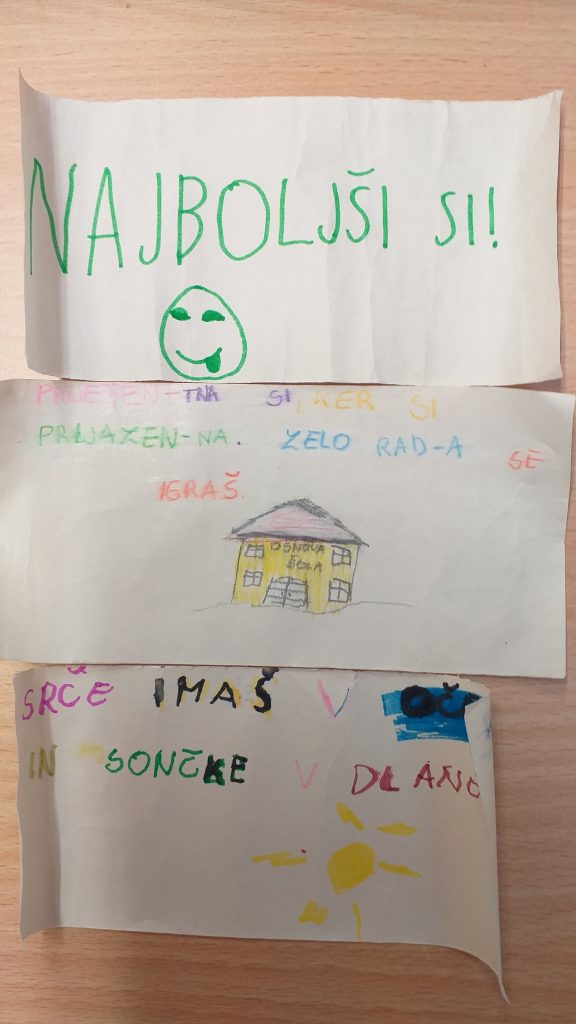 NAJBOLJŠI SI!
PRIJETEN-TNA SI, KER SI
PRIJAZEN-NA. ZELO RAD-A SE
IGRAŠ.
OSNOVA
ŠOLA
SRČE IMAŠ V OČ
IN SONČKE V DLANE